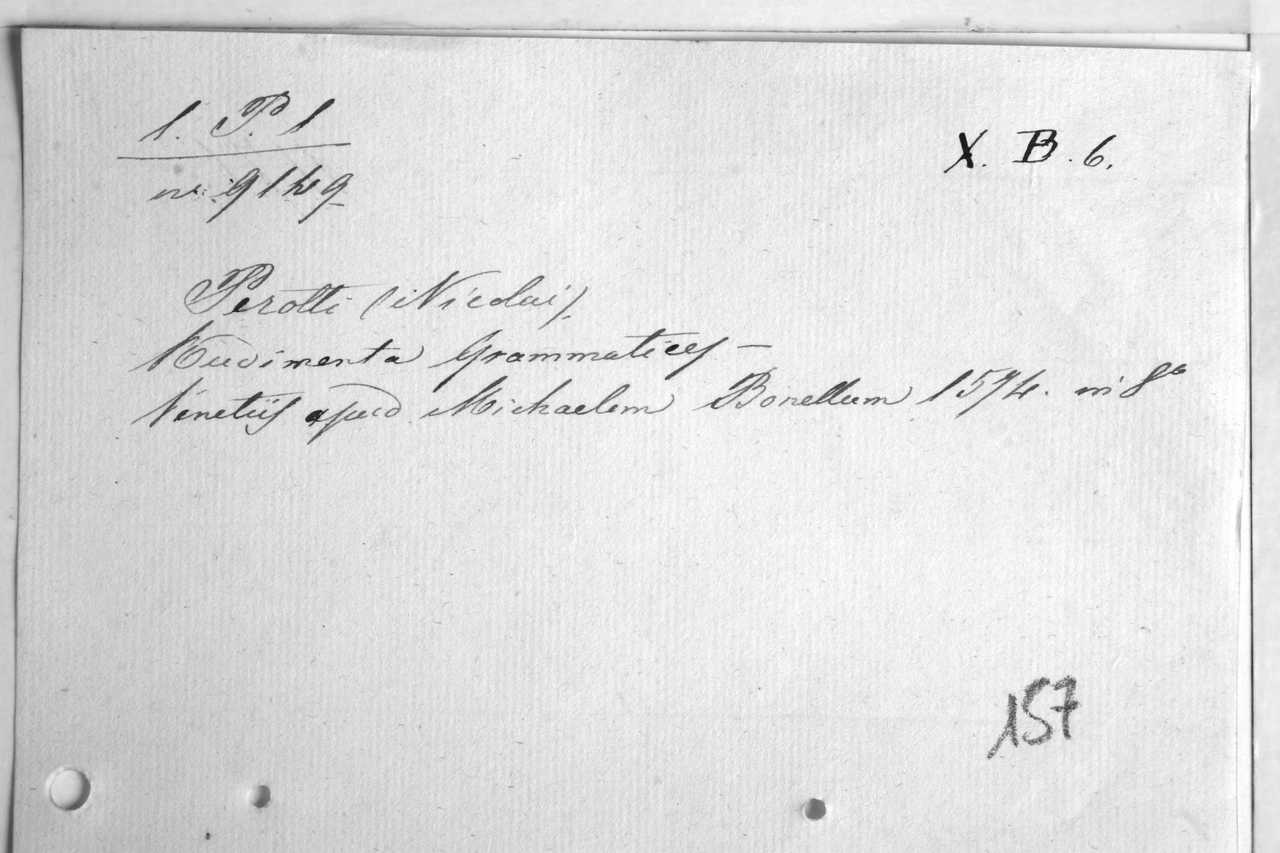 1. P. 1
X. B. 6.
n.: 9149
Perotti (Nicolai).
Rudimenta Grammatices –
Venetiis apud Michaelem Bonellum 1574. in 8º
157